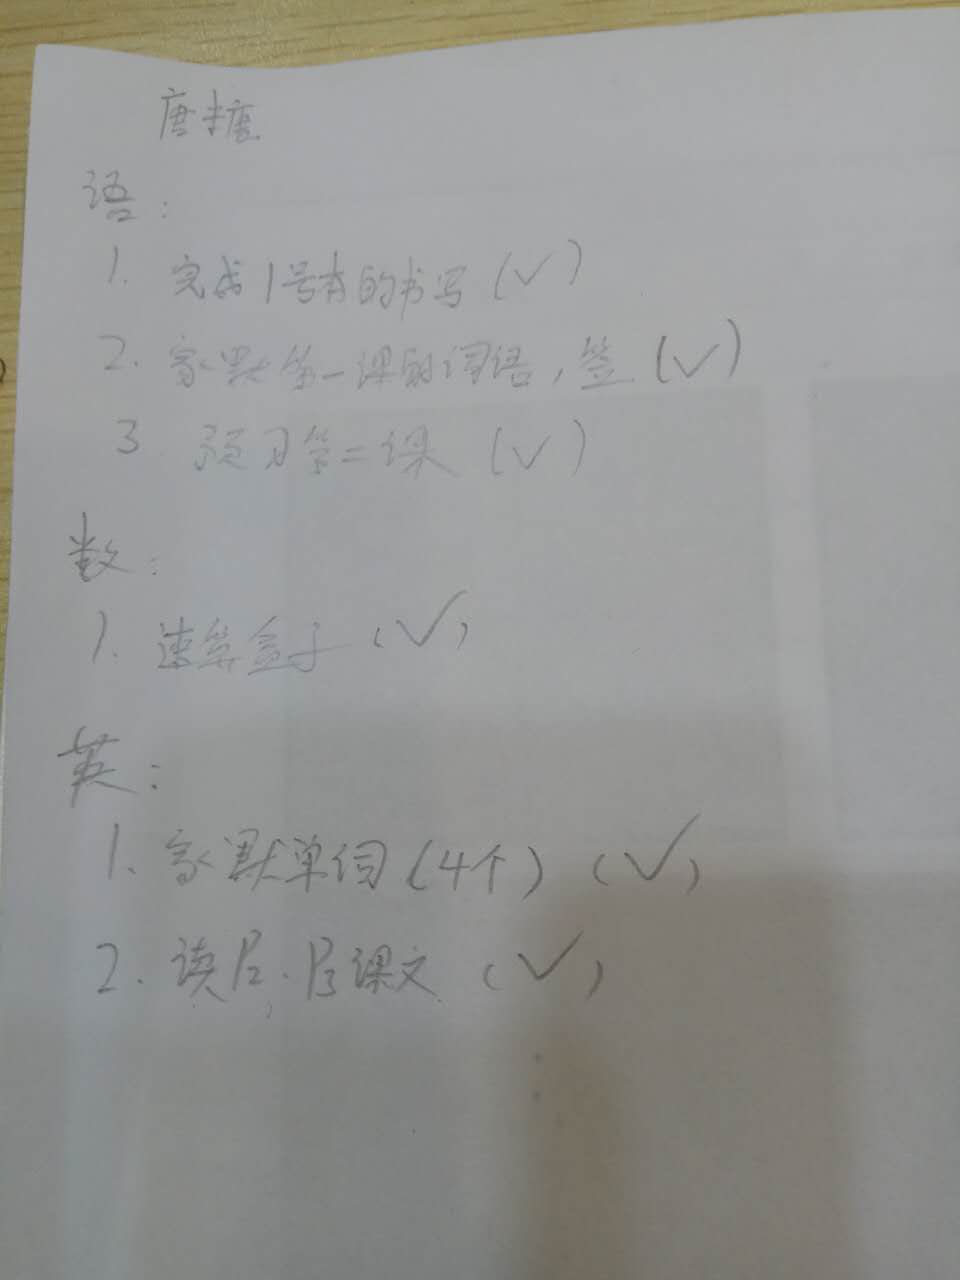 唐糖
语：
1. 完成1号本的书写（✓）
2. 家默第一课的词语，签（✓）
3 预习第二课（✓）
数：
1. 速算盒子（✓）
英：
1. 家默单词（4个）（✓）
2. 读P2.P3课文（✓）